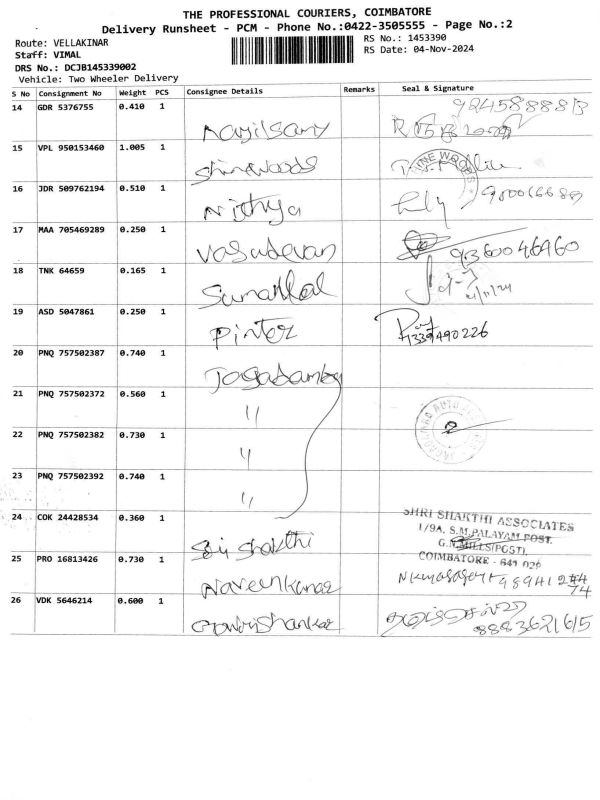 THE PROFESSIONAL COURIERS, COIMBATORE
Delivery Runsheet - PCM - Phone No.:0422-3505555 - Page No.:2
Route: VELLAKINAR
RS No.: 1453390
Staff: VIMAL
RS Date: 04-Nov-2024
DRS No.: DCJB145339002
Vehicle: Two Wheeler Delivery
S No Consignment No Weight PCS Consignee Details Remarks Seal & Signature
14 GDR 5376755 0.410 1
15 VPL 950153460 1.005 1 Shinewoods
16 JDR 509762194 0.510 1 Nithya
17 MAA 705469289 0.250 1 Vasudevan 9360046960
18 TNK 64659 0.165 1 4/11/24
19 ASD 5047861 0.250 1 Pinter
20 PNQ 757502387 0.740 1 Jagadamba
21 PNQ 757502372 0.560 1 "
22 PNQ 757502382 0.730 1 "
23 PNQ 757502392 0.740 1 "
24 COK 24428534 0.360 1 Sri Shakthi
SHRI SHAKTHI ASSOCIATES
1/9A, S.M.PALAYAM POST,
G.N.MILLS(POST),
COIMBATORE - 641 029
25 PRO 16813426 0.730 1 Naveenkumar
26 VDK 5646214 0.600 1 Gowrishankar 8883621615